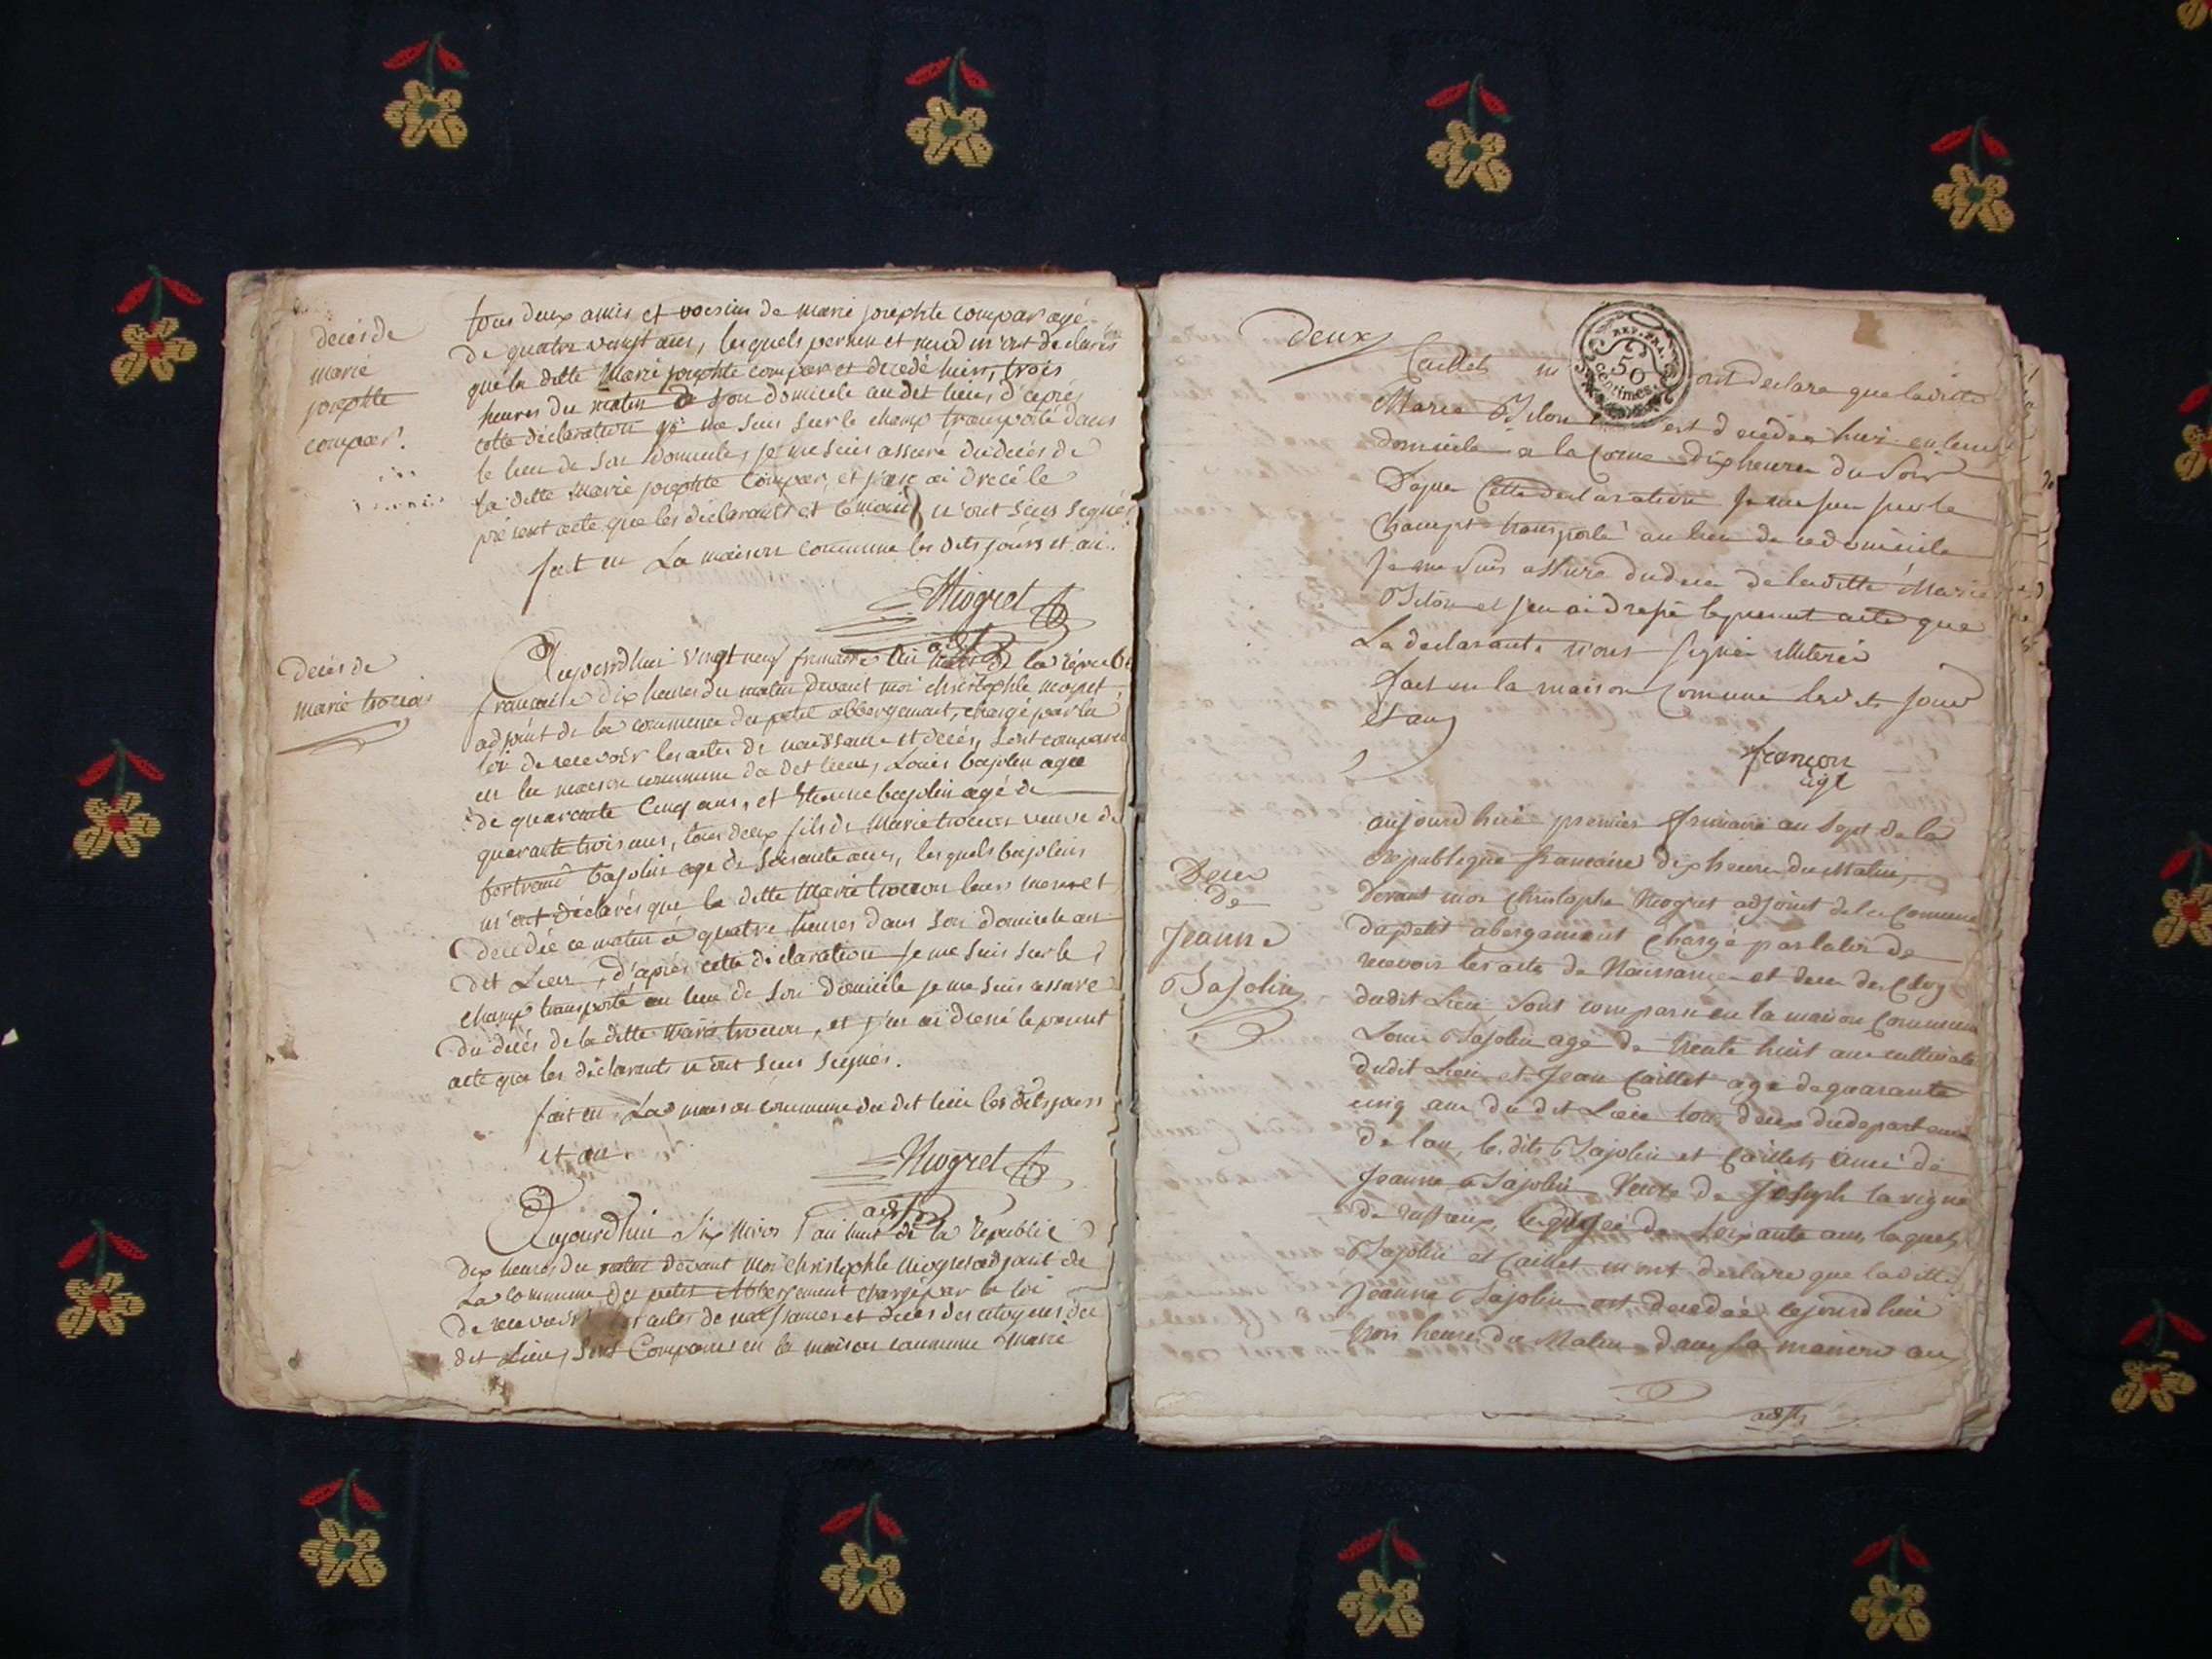 décès de
marie
josephte
compar.
tous deux amis et voisins de marie josephte compar agé
de quatre vingt ans, lesquels m'ont declarés
que la ditte Marie josephte compar est décedé hier, trois
heures du matin son domicile au dit lieu, d'après
cette déclaration je me suis sur le champ transporté dans
le lieu de son domicile, je me suis assuré du décès de
la ditte Marie josephte Compar, et j'en ai dressé le
présent acte que les déclarants et témoins n'ont sçus signés
fait en La maison commune les dits jours et an.
Niogret
adjt
décès de
marie trocon
Aujourd'hui vingt neuf frimaire an de la répub
française dix heures du matin devant moi christophle niogret
adjoint de la commune du petit abbergement, chargé par la
loi de recevoir les actes de naissance et décès, sont comparu
en la maison commune du dit lieu, Louis bajolin agé
de quarante Cinq ans, et Etienne bajolin agé de
quarante trois ans, tous deux fils de Marie trocon veuve de
bertrand bajolin agé de soixante ans, lesquels bajolins
m'ont déclarés que la ditte Marie trocon leurs mere et
décédée ce matin à quatre heures dans son domicile au
dit Lieu, d'après cette déclaration je me suis sur le
champ transporté au lieu de son domicile je me suis assuré
du décès de la ditte marie trocon, et j'en ai dressé le présent
acte que les déclarants n'ont sçus signés.
fait en La maison commune du dit lieu les dits jours
et an.
Niogret
adjt
Aujourd'hui Six Nivos l'an huit de la Républic
dix heures du matin devant moi christophle Niogret adjoint de
La commune du petit Abbergement chargé par la loi
de recevoir les actes de naissances et décès des citoyens du
dit Lieu, sont Comparus en la maison commune Marie
deux
REP. FRA.
50
Centimes
Caillet m'ont declare que laditte
Marie Bilon est decedee hier en leur
domicile a la Corne dix heures du Soir
Dapres Cette declaration Je me suis sur le
Champt transporté au lieu de ce domicile
Je me suis assuré du deces de laditte Marie
Bilon et jen ai dressé le present acte que
Le declarants n'ont signer illiterés
fait en la maison Comune lesdits jour
et an
francon
agt
Deces
De
Jeanne
Bajolin
aujourd'hui premier frimaire an Sept de la
Republique francaise dix heures du Matin,
devant moi Christophe Niogret adjoint de la Comune
du petit abergement Chargé par la loi de
recevoir les acte de Naissance et deces des Citoy
dudit Lieu, sont comparu en la maison Commune
Louis Bajolin agé de trente huit ans cultivate
dudit Lieu et Jean Caillet agé de quarante
cinq ans dudit Lieu tous deux du departem
de lain, le dits Bajolin et Caillet, amis de
Jeanne Bajolin Veuve de Joseph lavigne
de soixante ans, laquels
Bajolin et Caillet m'ont declare que laditte
Jeanne Bajolin est decedée cejourdhui
trois heures du Matin dans sa maison au
adjt